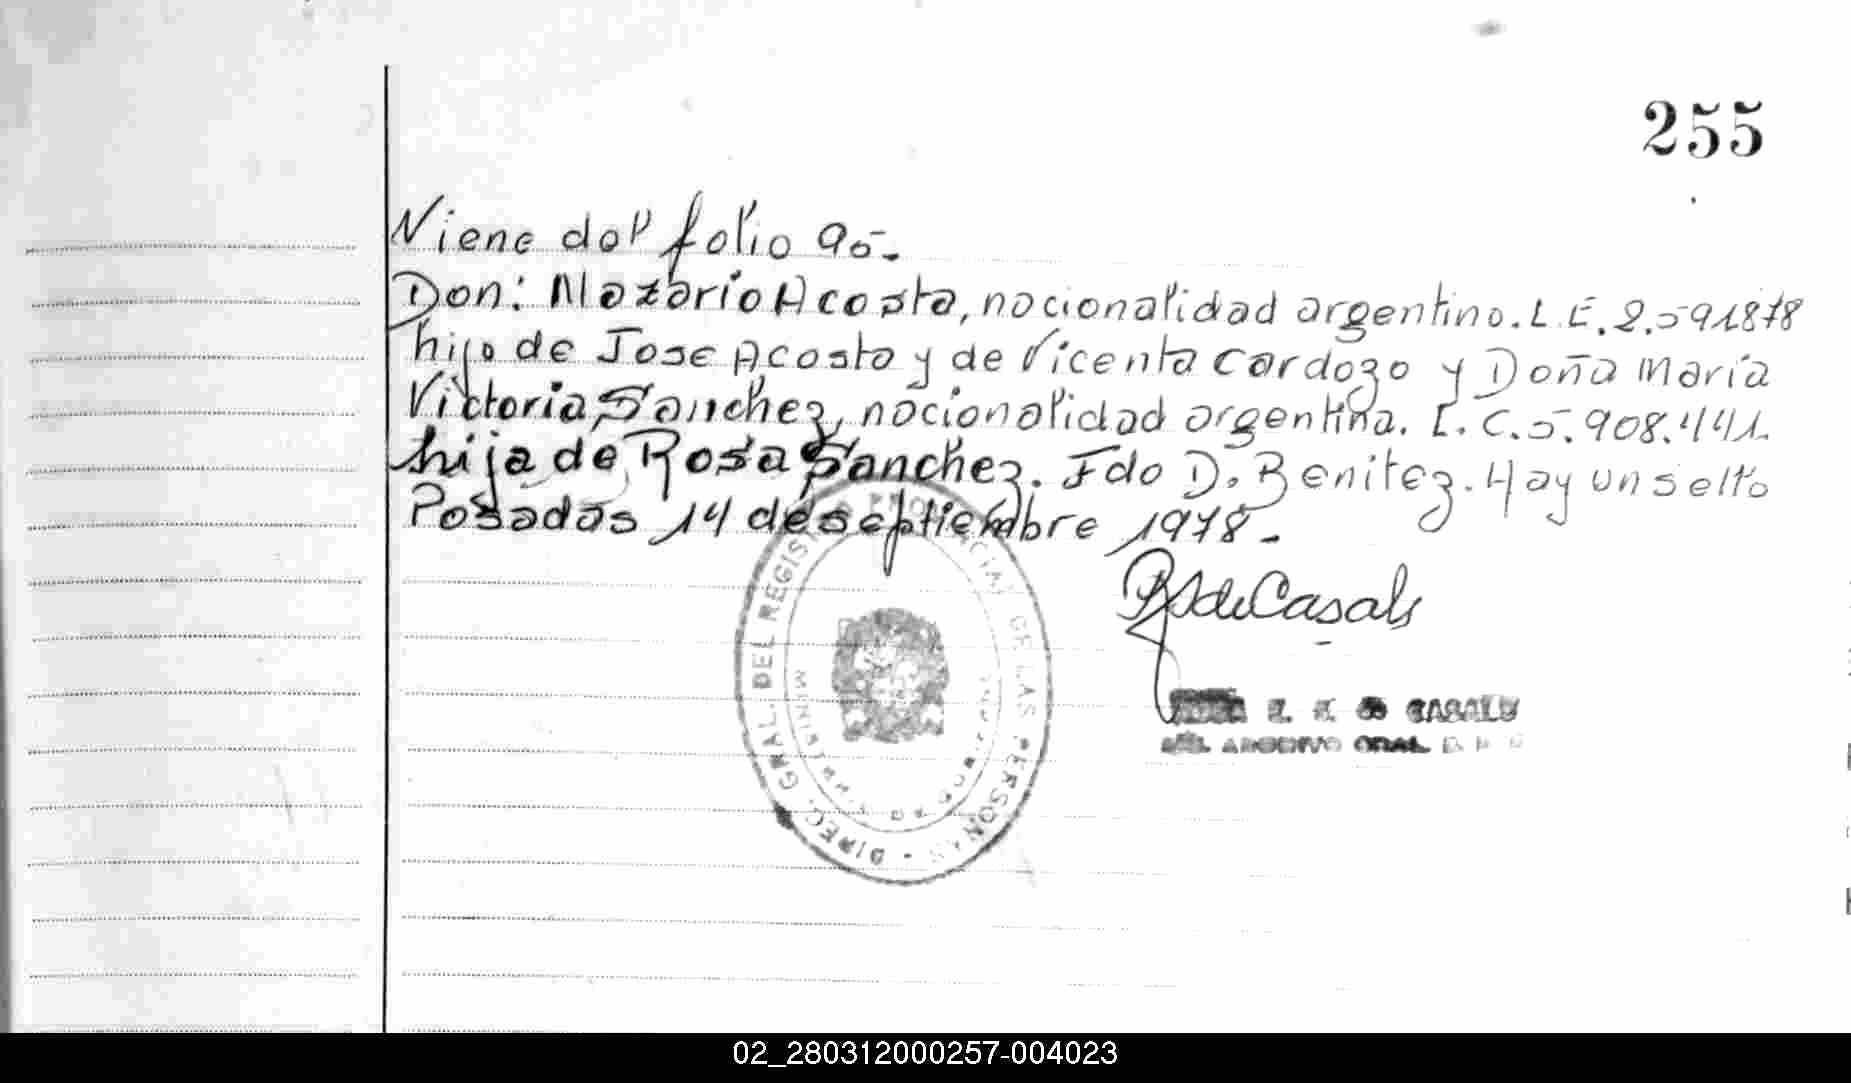 255
Viene del folio 95.-
Don: Nazario Acosta, nacionalidad argentino. L.E. 2.591878
hijo de Jose Acosta y de Vicenta Cardozo y Doña María
Victoria Sanchez, nacionalidad argentina. L.C. 5.908.441.
hija de Rosa Sanchez. Fdo D. Benitez. Hay un sello
Posadas 14 de septiembre 1978.-
DIREC. GRAL. DEL REGISTRO PROVINCIAL DE LAS PERSONAS
MINISTERIO DE GOBIERNO
de Casals
DE CASALS
ARCHIVO GRAL.
02_280312000257-004023